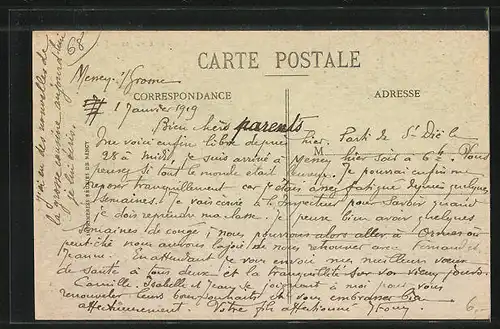 J'ai eu des nouvelles de
la grosse cousine aujourd'hui
je lui écris
68
CARTE POSTALE
CORRESPONDANCE
ADRESSE
M
1 Janvier 1919
Bien chers parents
Me voici enfin libre depuis hier. Parti de St Dié le
28 à midi, je suis arrivé à hier soir à 6h. Vous
pensez si tout le monde était heureux. Je pourrai enfin me
reposer tranquillement car j'étais assez fatigué depuis quelques
semaines. Je vais écrire à l'Inspecteur pour savoir quand
je dois reprendre ma classe. Je pense bien avoir quelques
semaines de congé, nous pourrons alors aller à
peut-être nous aurons la joie de nous retrouver avec Fernand et
Jeanne. En attendant je vous envoie mes meilleurs vœux
de santé à tous deux et la tranquillité sur vos vieux jours.
Camille, Isabelle et Jean se joignent à moi pour vous
renouveler leurs bons souhaits et vous embrasser bien
affectueusement. Votre fils affectionné
6,-